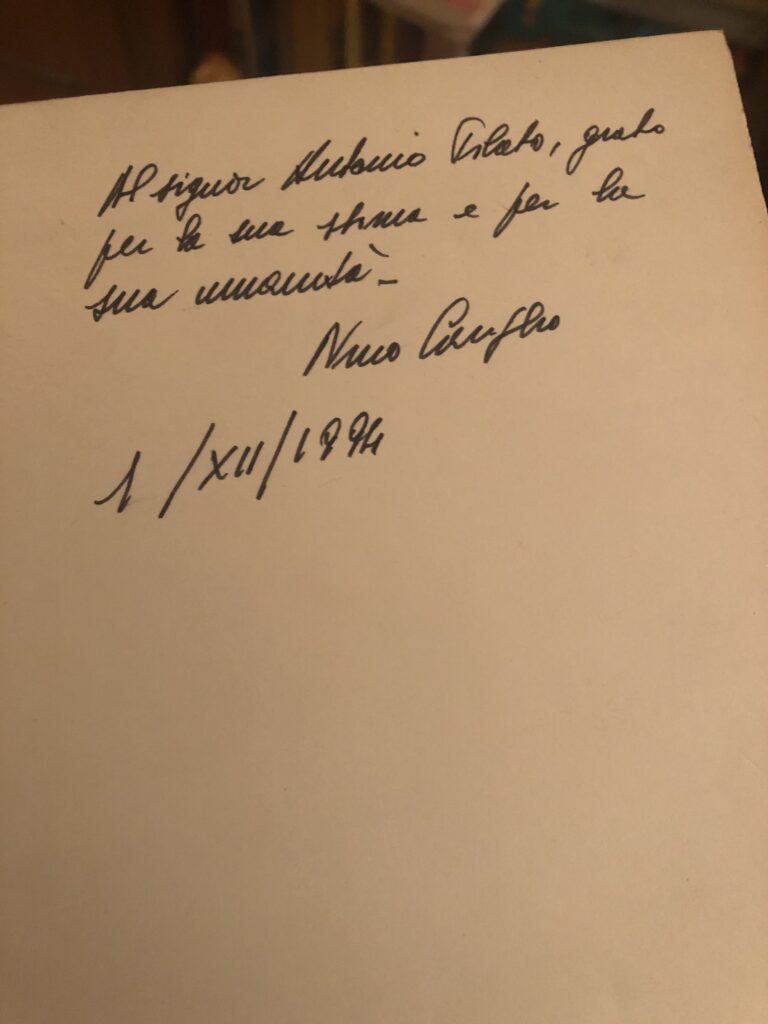 Al signor Antonio Pilato, grato
per la sua stima e per la
sua umanità -
Nino
1/XII/1994